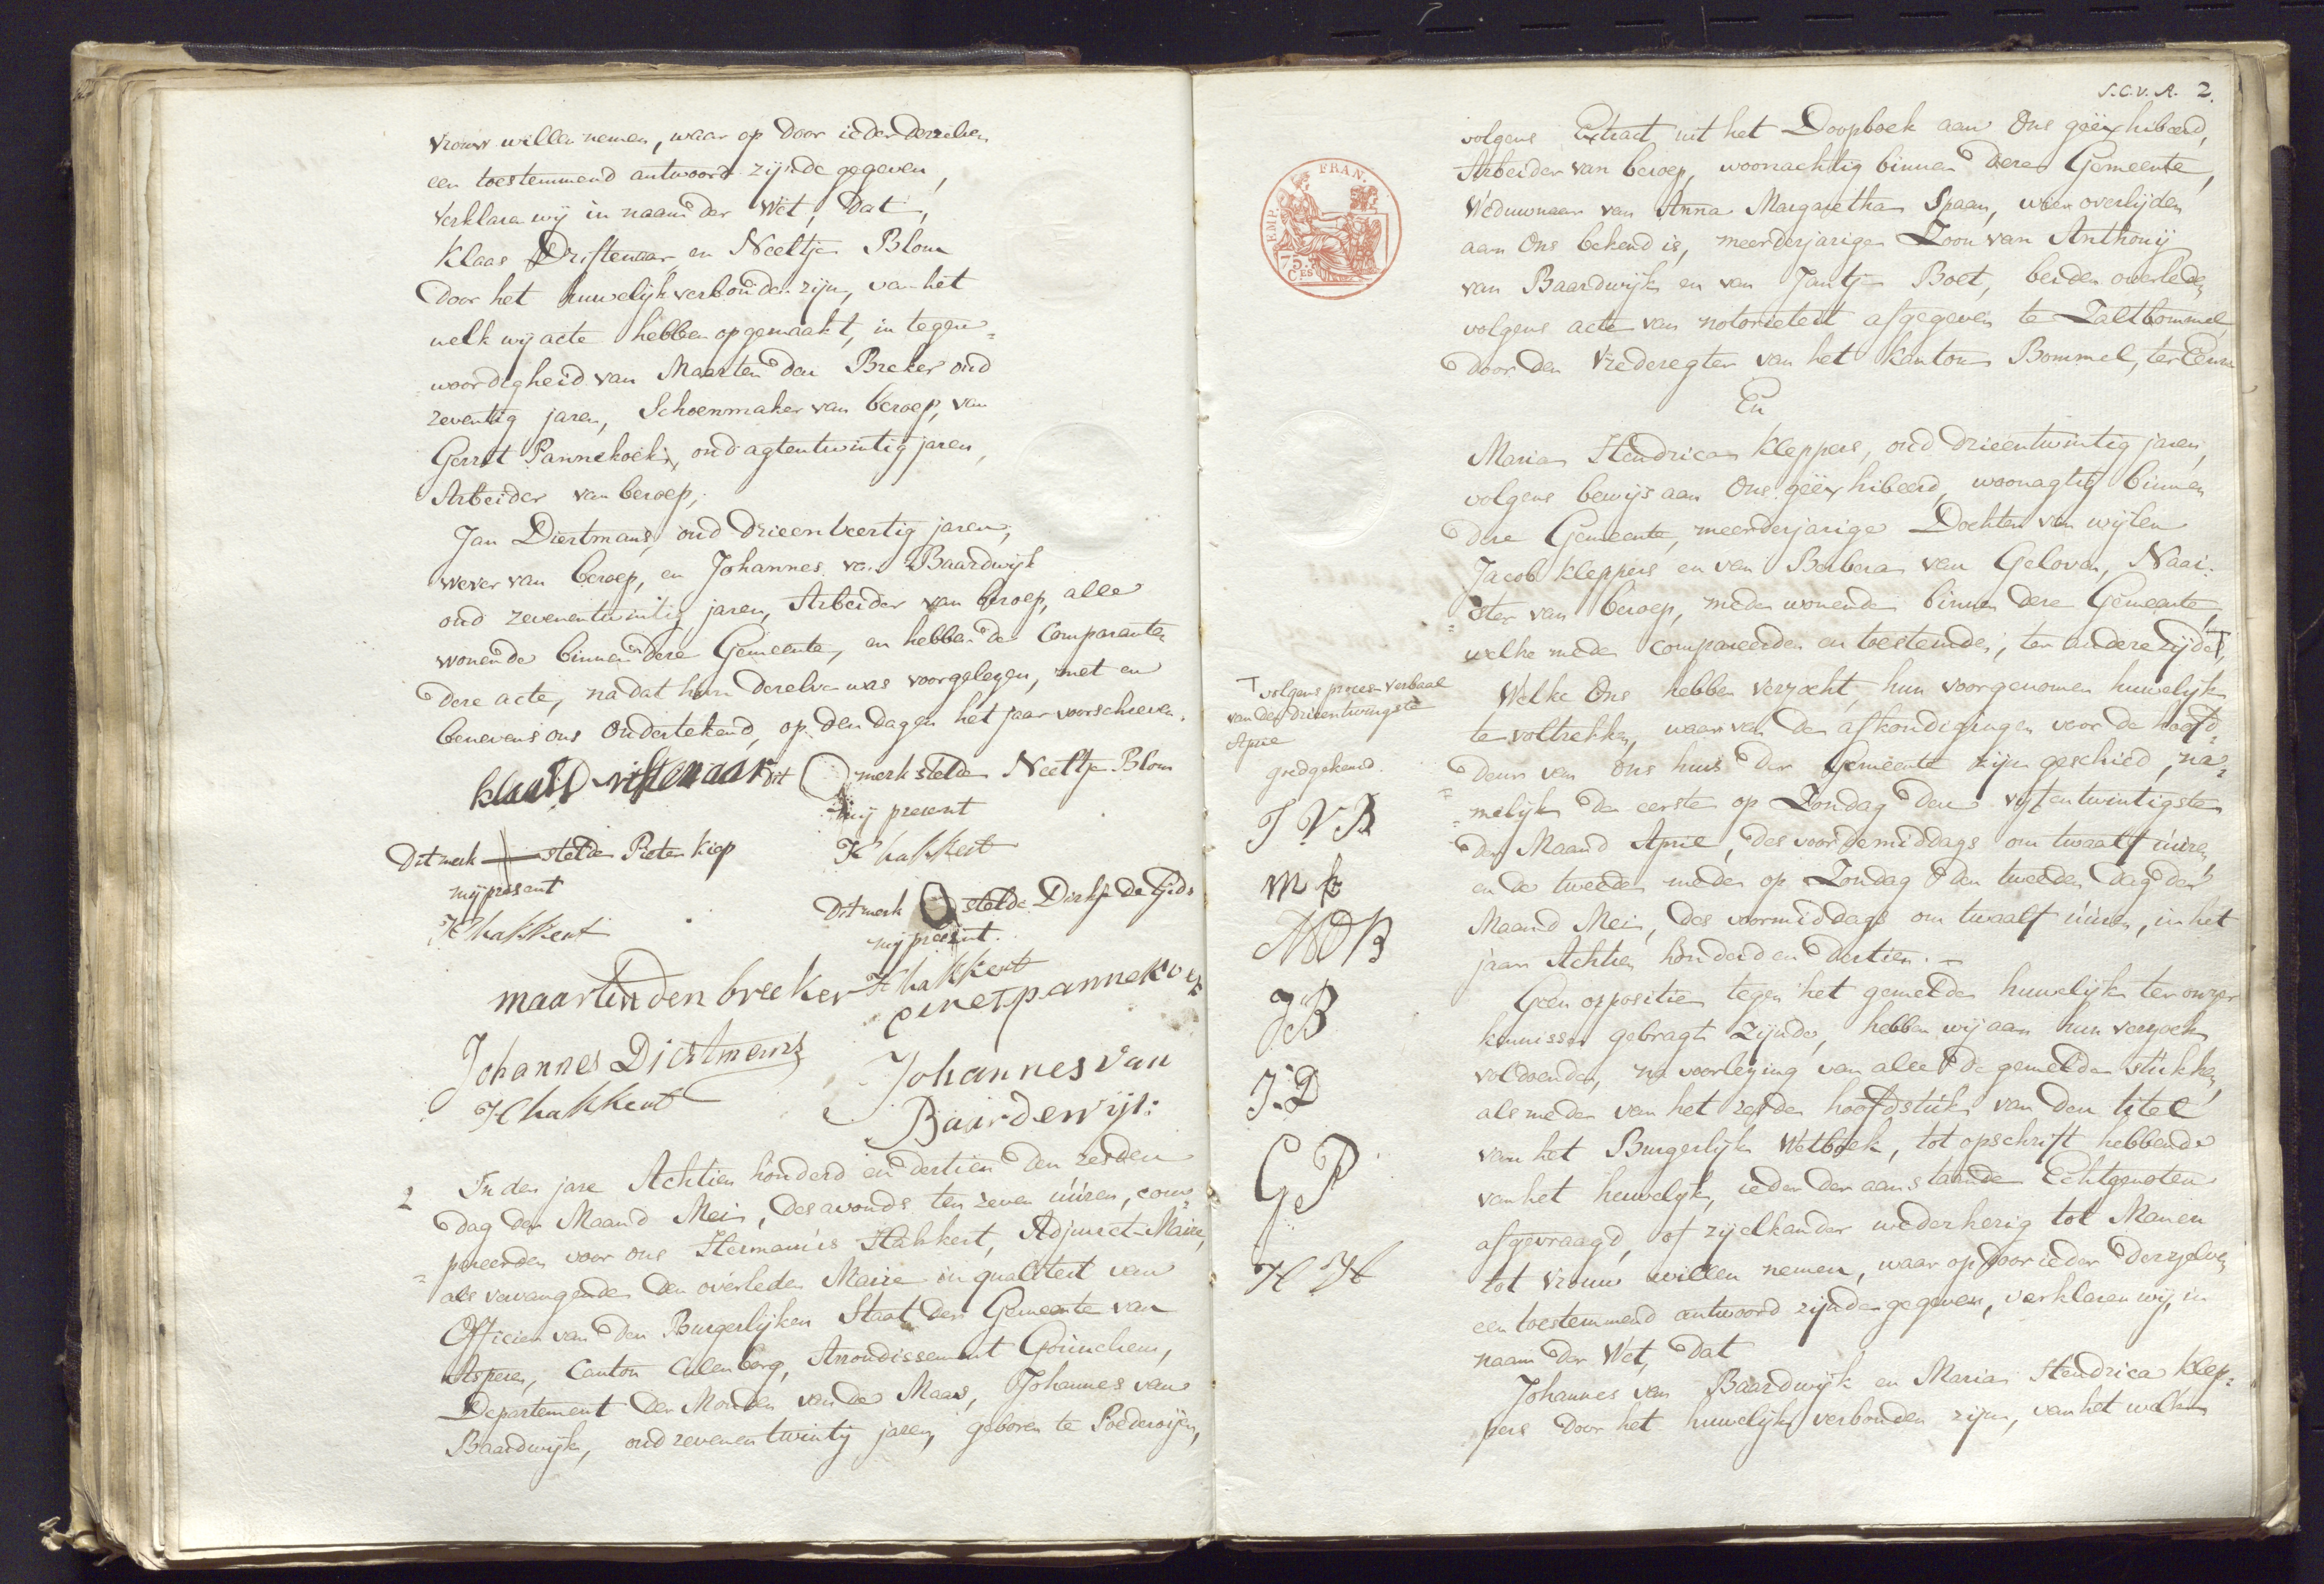 vrouw willen nemen, waar op door ieder derzelven
een toestemmend antwoord zijnde gegeven,
verklaren wij in naam der Wet, dat,
Klaas Driftenaar en Neeltje Blom
door het huwelijk verbonden zijn, van het
welk wij acte hebben opgemaakt, in tegen=
woordigheid van Maarten den Breker oud
zeventig jaren, Schoenmaker van beroep, van
Gerrit Pannekoek, oud agtentwintig jaren,
Arbeider van beroep,
Jan Diertmans, oud drieenveertig jaren,
wever van beroep, en Johannes van Baardwijk
oud zevenentwintig jaren, Arbeider van beroep, alle
wonende binnen dese Gemeente, en hebben de Comparanten
dese acte, na dat hun deselve was voorgelesen, met en
benevens ons ondertekend, op den dag en het jaar voorschreven.
klaas Driftenaar dit merk stelde Neeltje Blom
mij present
H hakkert
Dit merk stelde Pieter Kiep
mij present
H hakkert
Dit merk stelde Dirkje de Gids
mij present.
H hakkert
maarten den breeker
gerret pannekoek
Johannes Diertmans
H hakkert
Johannes van
Baardewijk
2 In den jare Achtien honderd en dertien den zesden
dag der Maand Mei, des avonds ten zeven uuren, com=
=pareerden voor ons Hermanus Hakkert, Adjunct-Maire,
als vervangende den overleden Maire in qualiteit van
Officier van den Burgerlijken Staat der Gemeente van
Asperen, Canton Culenborg, Arrondissement Gorinchem,
Departement der Monden van de Maas, Johannes van
Baardwijk, oud zevenentwintig jaren, geboren te Poederoijen,
S.C.v.A. 2.
volgens Extract uit het Doopboek aan Ons geëxhibeerd,
Arbeider van beroep, woonachtig binnen dese Gemeente,
Weduwnaar van Anna Margaretha Spaan, wier overlijden
aan Ons bekend is, meerderjarige Zoon van Anthonij
van Baardwijk en van Jantje Boet, beiden overleden
volgens acte van notorieteit afgegeven te Zaltbommel
door den Vrederegter van het Kanton Bommel, ter Eenre
En
Maria Hendrica Kleppers, oud drieentwintig jaren,
volgens bewijs aan Ons geëxhibeerd, woonagtig binnen
dese Gemeente, meerderjarige Dochter van wijlen
Jacob Kleppers en van Berbera van Geloven, Naai=
=ster van beroep, mede wonende binnen dese Gemeente,
welke mede compareerden en toestemde, ter andere zijde T,
Welke Ons hebben verzocht, hun voorgenomen huwelijk
te voltrekken, waar van de afkondigingen voor de hoofd=
deur van ons huis der Gemeente zijn geschied, na=
=melijk de eerste op Zondag den vijfentwintigsten
der Maand April, des voordemiddags om twaalf uuren,
en de tweede mede op Zondag den tweeden dag der
Maand Mei, des voormiddags om twaalf uuren, in het
jaar Achtien honderd en dertien.
Geen oppositie tegen het gemelde huwelijk ter onzer
kennisse gebragt zijnde, hebben wij aan hun versoek
voldoende, na voorlezing van alle de gemelde stukken,
als mede van het zesde hoofdstuk van den titel
van het Burgerlijk Wetboek, tot opschrift hebbende
van het huwelijk, ieder der aanstaande Echtgenoten
afgevraagd, of zij elkander wederkerig tot Man en
tot vrouw willen nemen, waar op door ieder derzelven
een toestemmend antwoord zijnde gegeven, verklaren wij, in
naam der Wet, dat
Johannes van Baardwijk en Maria Hendrica Klep=
pers door het huwelijk verbonden zijn, van het welk
EMP. FRAN.
75.
CES
T volgens proces-verbaal
van den drieentwingste
April
goedgekeurd.
J V B
M K
M D B
J B
J. D
G P
H H